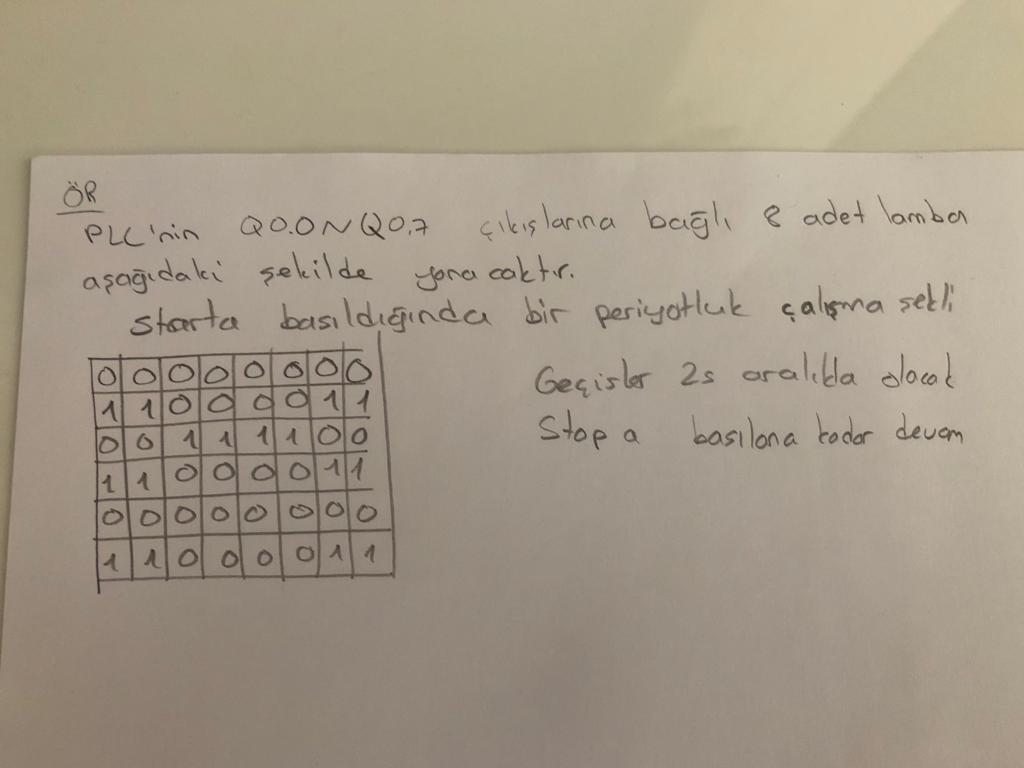 ÖR
PLC'nin Q0.0~Q0.7 çıkışlarına bağlı 8 adet lamba
aşağıdaki şekilde yanacaktır.
Starta basıldığında bir periyotluk çalışma sekli
0 0 0 0 0 0 0 0
1 1 0 0 0 0 1 1
0 0 1 1 1 1 0 0
1 1 0 0 0 0 1 1
0 0 0 0 0 0 0 0
1 1 0 0 0 0 1 1
Geçisler 2s aralıkla olacak
Stop a basılana kadar devam